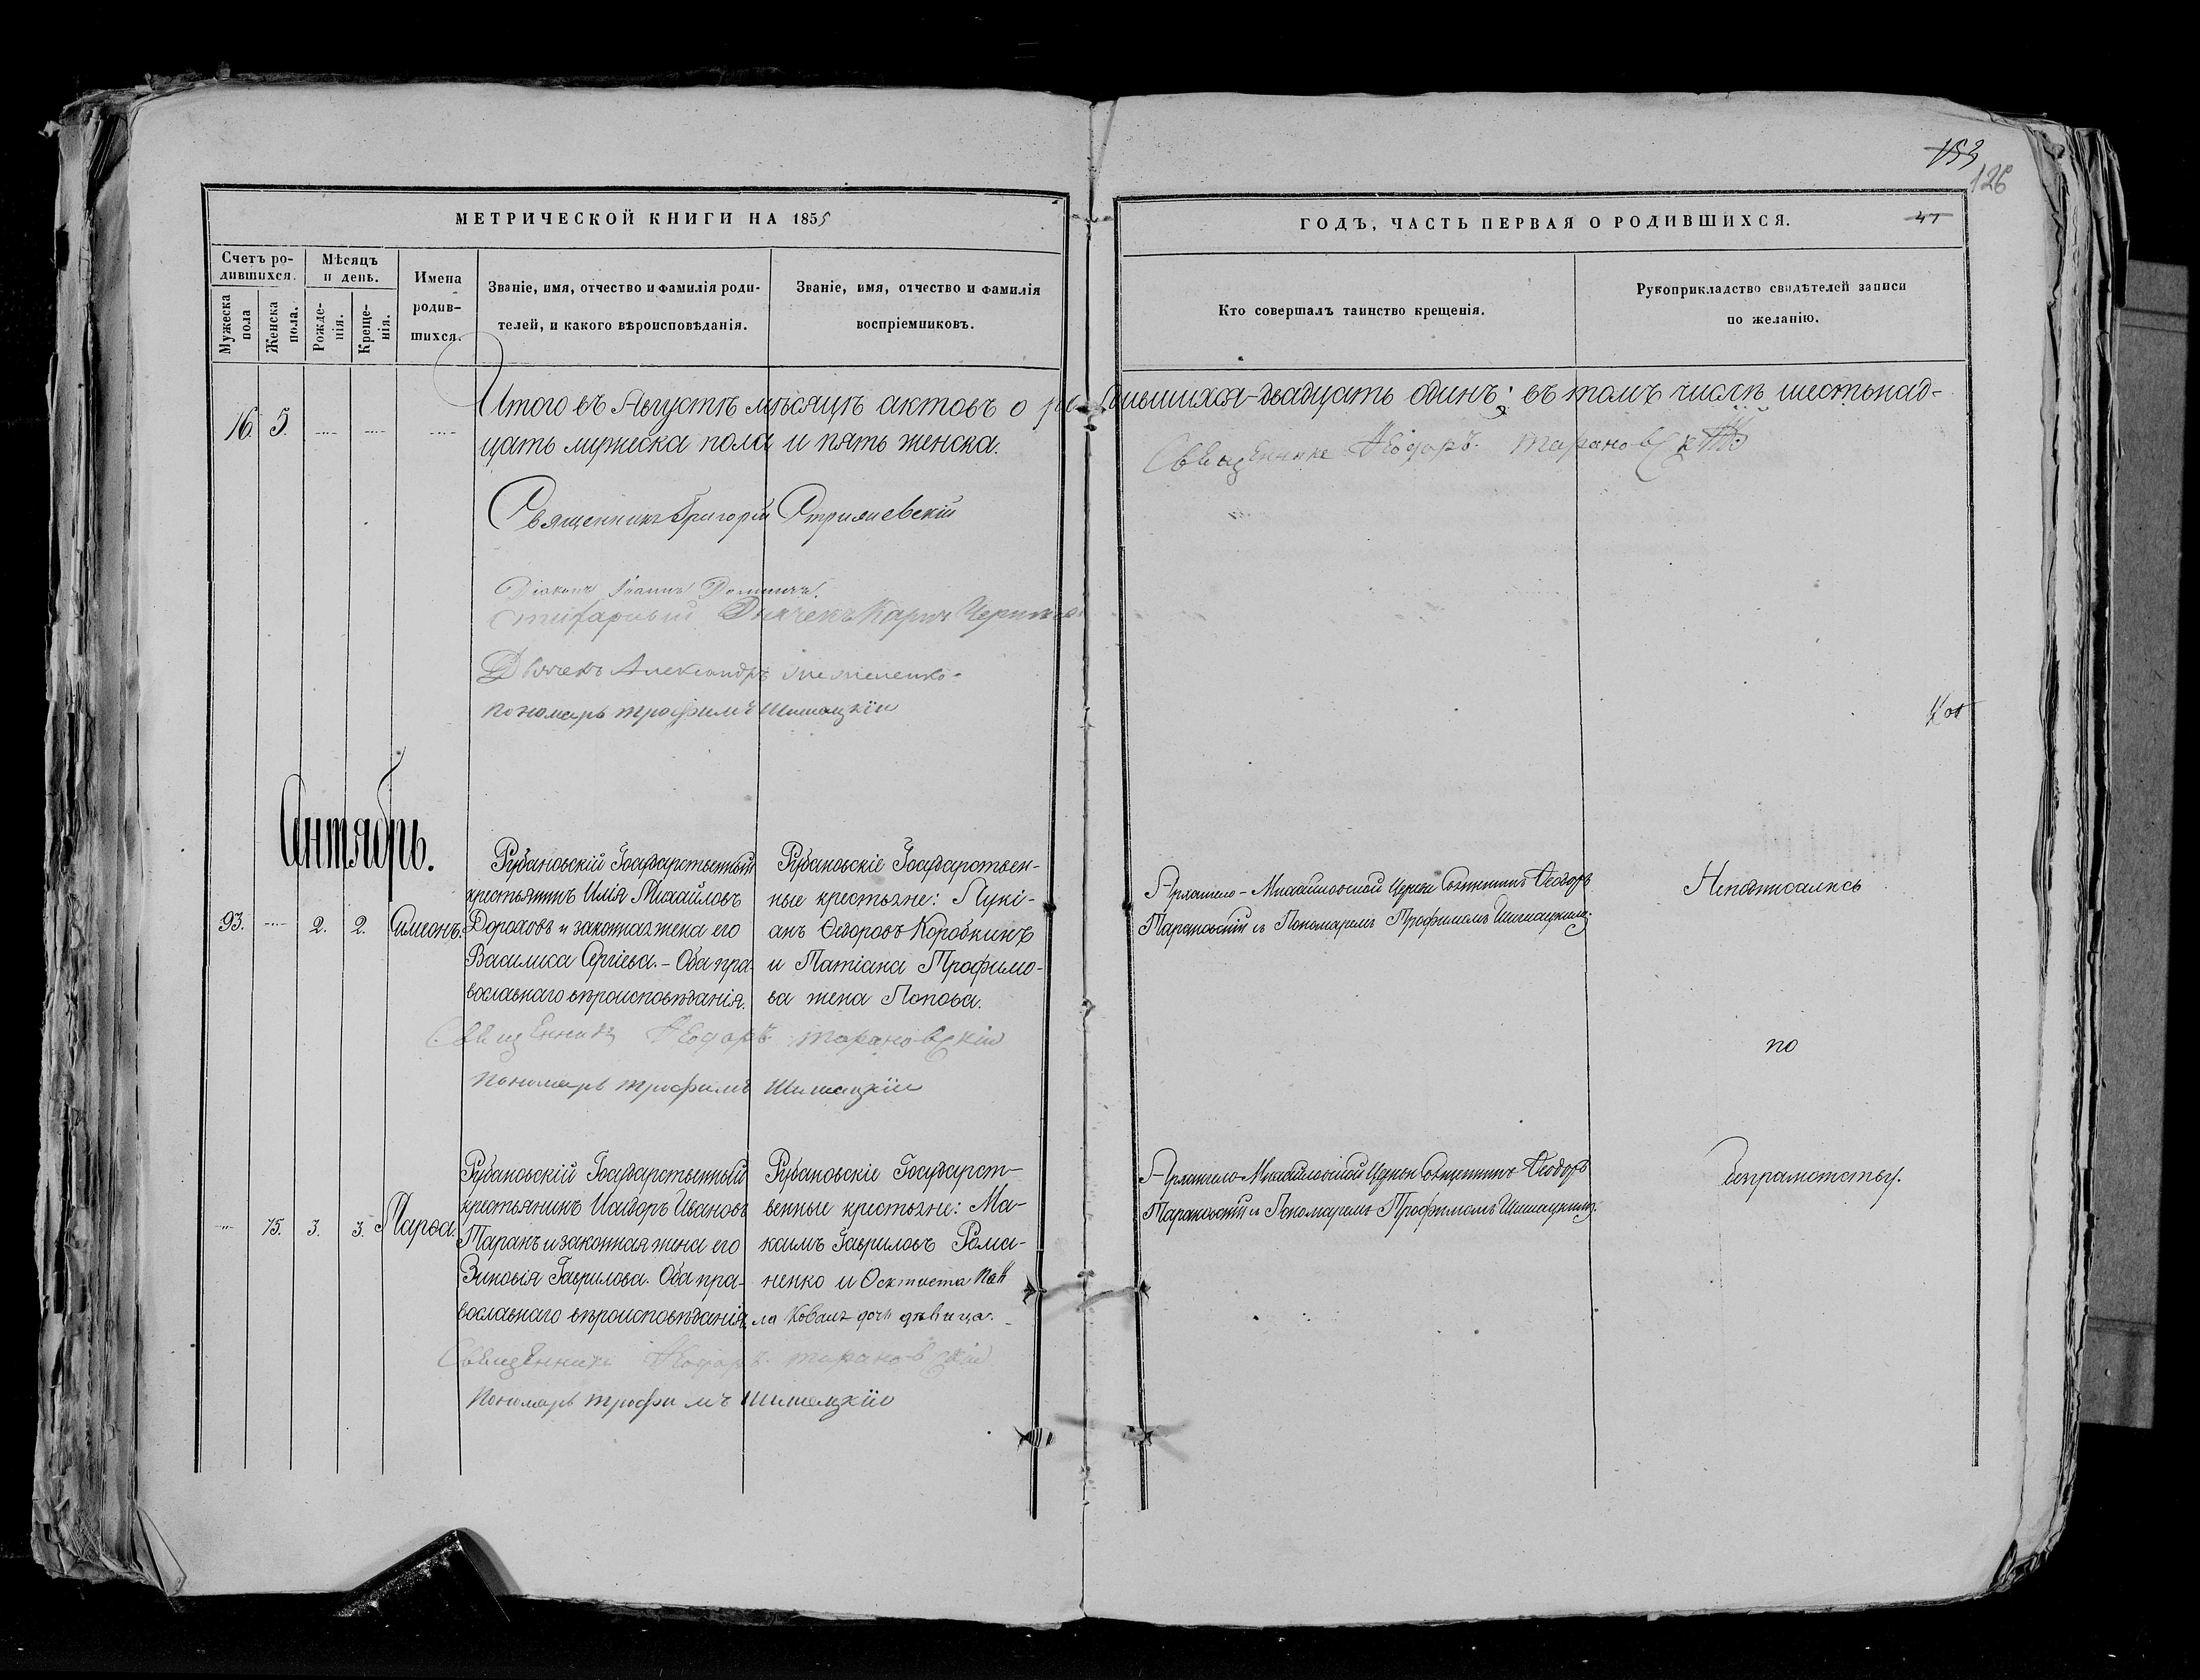 153
126
МЕТРИЧЕСКОЙ КНИГИ НА 1855
ГОДЪ, ЧАСТЬ ПЕРВАЯ О РОДИВШИХСЯ.
Счетъ ро-
дившихся.
Мужеска пола
Женска пола.
Мѣсяцъ
и день.
Рожде-
нія.
Креще-
нія.
Имена
родив-
шихся.
Званіе, имя, отчество и фамилія роди-
телей, и какого вѣроисповѣданія.
Званіе, имя, отчество и фамилія
воспріемниковъ.
Кто совершалъ таинство крещенія.
Рукоприкладство свидѣтелей записи
по желанію.
16. 5. Итого въ Августѣ мѣсяцѣ актовъ о родившихся двадцать одинъ; въ томъ числѣ шестьнад-
цать мужеска пола и пять женска.
Священникъ Григорій
Діаконъ Іоаннъ
Дьячекъ Александръ
пономарь трофимъ Шишацкій
Сентябрь.
93. 2. 2. Симеонъ.
Рубановскій Государственный
крестьянинъ Илія Михайловъ
Дороховъ и законная жена его
Василиса Сергіева. – Оба пра-
вославнаго вѣроисповѣданія.
Рубановскіе Государствен-
ные крестьяне: Лукі-
анъ Ѳедоровъ Коробкинъ
и Татіана Трофимо-
ва жена Попова.
Архангело-Михайловской Церкви Священникъ Ѳеодоръ
Тарановскій съ Пономаремъ Трофимомъ Шишацкимъ.
Неподписались
Ѳеодоръ тарановскій
пономарь трофимъ Шишацкій
по
75. 3. 3. Марѳа.
Рубановскій Государственный
крестьянинъ Исидоръ Ивановъ
Таранъ и законная жена его
Зиновія Гаврилова. Оба пра-
вославнаго вѣроисповѣданія.
Рубановскіе Государст-
венные крестьяне: Ма-
каимъ Гавриловъ Рома-
ненко и Ѳектиста
дочь дѣвица.
Архангело-Михайловской Церкви Священникъ Ѳеодоръ
Тарановскій съ Пономаремъ Трофимомъ Шишацкимъ.
безграмотству.
Ѳеодоръ тарановскій
Пономарь трофимъ Шишацкій